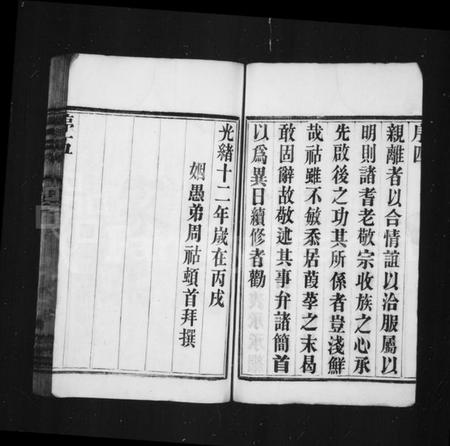 序四
親離者以合情誼以洽服屬以
明則諸耆老敬宗收族之心承
先啟後之功其所係者豈淺鮮
哉祜雖不敏忝居葭莩之末曷
敢固辭故敬述其事弁諸簡首
以為異日續修者勸
光緒十二年歲在丙戌
姻愚弟周祜頓首拜撰